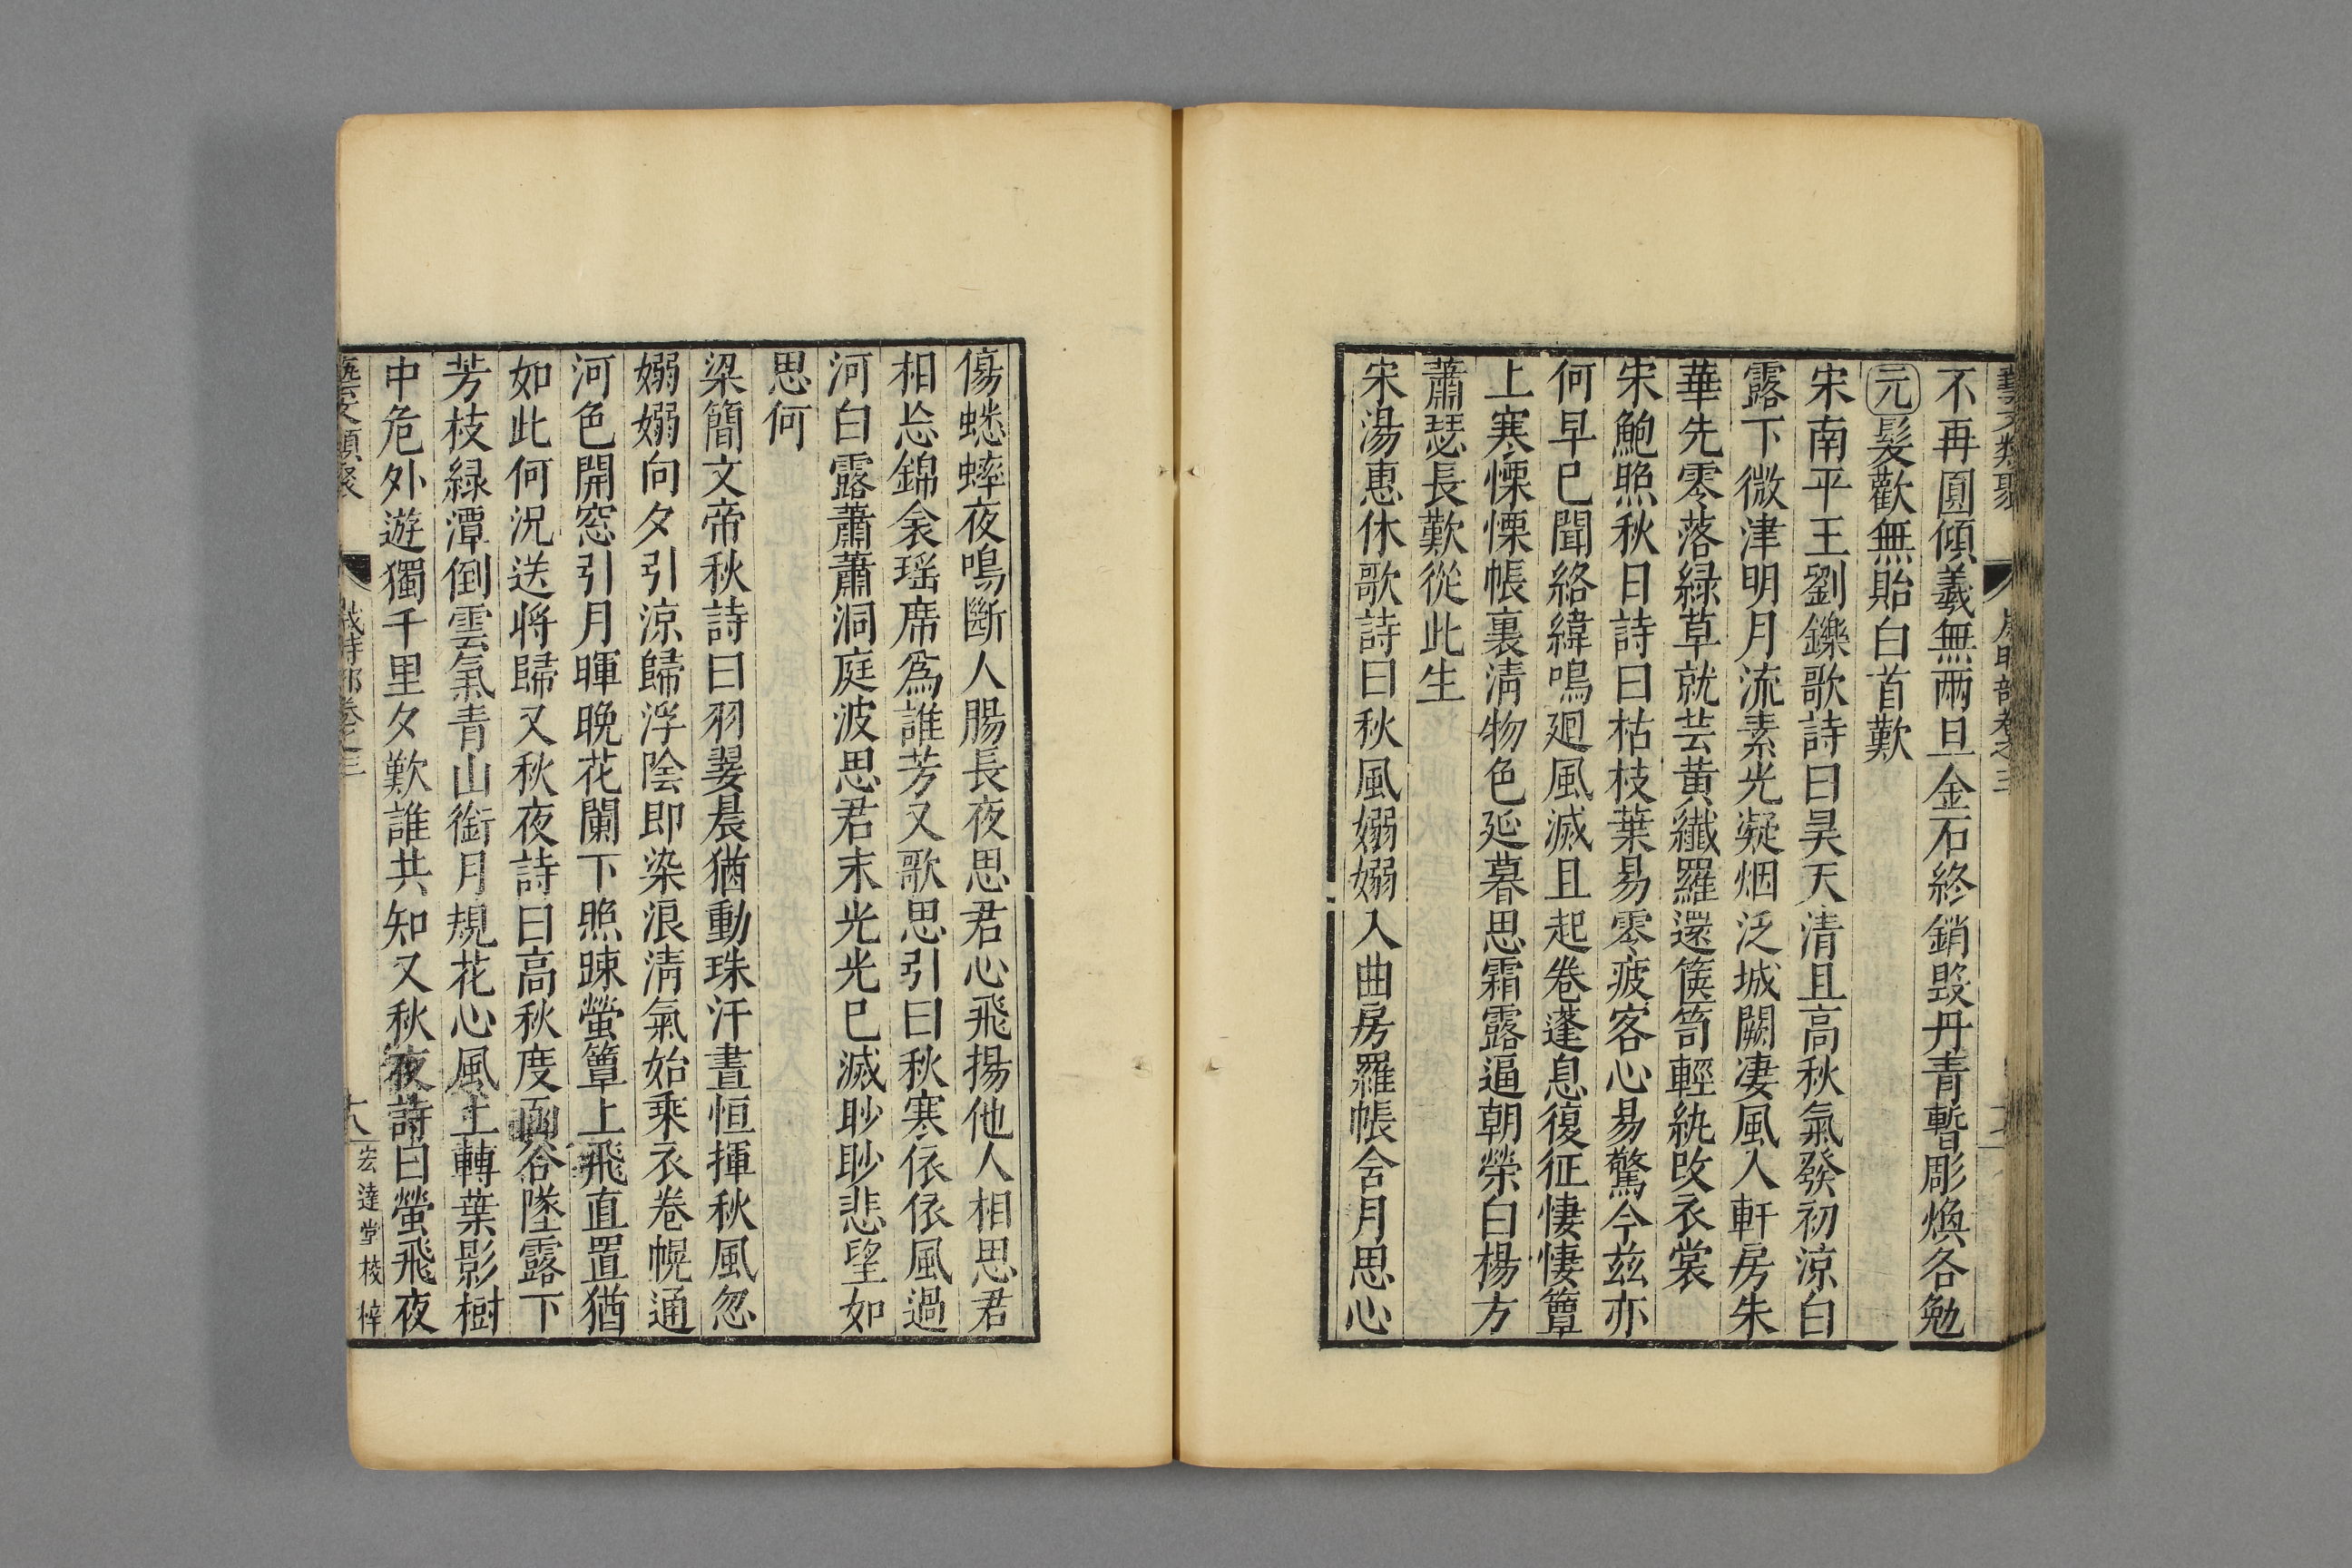 藝文類聚 歲時部卷之三
不再圓傾羲無兩旦金石終銷毀丹青暫彫煥各勉
元髮歡無貽白首歎
宋南平王劉鑠歌詩曰昊天清且高秋氣發初涼白
露下微津明月流素光凝烟泛城闕凄風入軒房朱
華先零落綠草就芸黃纖羅還篋笥輕紈改衣裳
宋鮑照秋日詩曰枯枝葉易零疲客心易驚今茲亦
何早已聞絡緯鳴廻風滅且起卷蓬息復征悽悽簟
上寒慄慄帳裏清物色延暮思霜露逼朝榮白楊方
蕭瑟長歎從此生
宋湯惠休歌詩曰秋風嫋嫋入曲房羅帳含月思心
傷蟋蟀夜鳴斷人腸長夜思君心飛揚他人相思君
相忘錦衾瑶席爲誰芳又歌思引曰秋寒依依風過
河白露蕭蕭洞庭波思君末光光已滅眇眇悲望如
思何
梁簡文帝秋詩曰羽翣晨猶動珠汗晝恒揮秋風忽
嫋嫋向夕引涼歸浮陰即染浪清氣始乘衣卷幌通
河色開窓引月暉晚花闌下照踈螢簟上飛直置猶
如此何況送將歸又秋夜詩曰高秋度函谷墜露下
芳枝緑潭倒雲氣青山銜月規花心風上轉葉影樹
中危外遊獨千里夕歎誰共知又秋夜詩曰螢飛夜
藝文類聚 歲時部卷之三 十八 宏達堂校梓